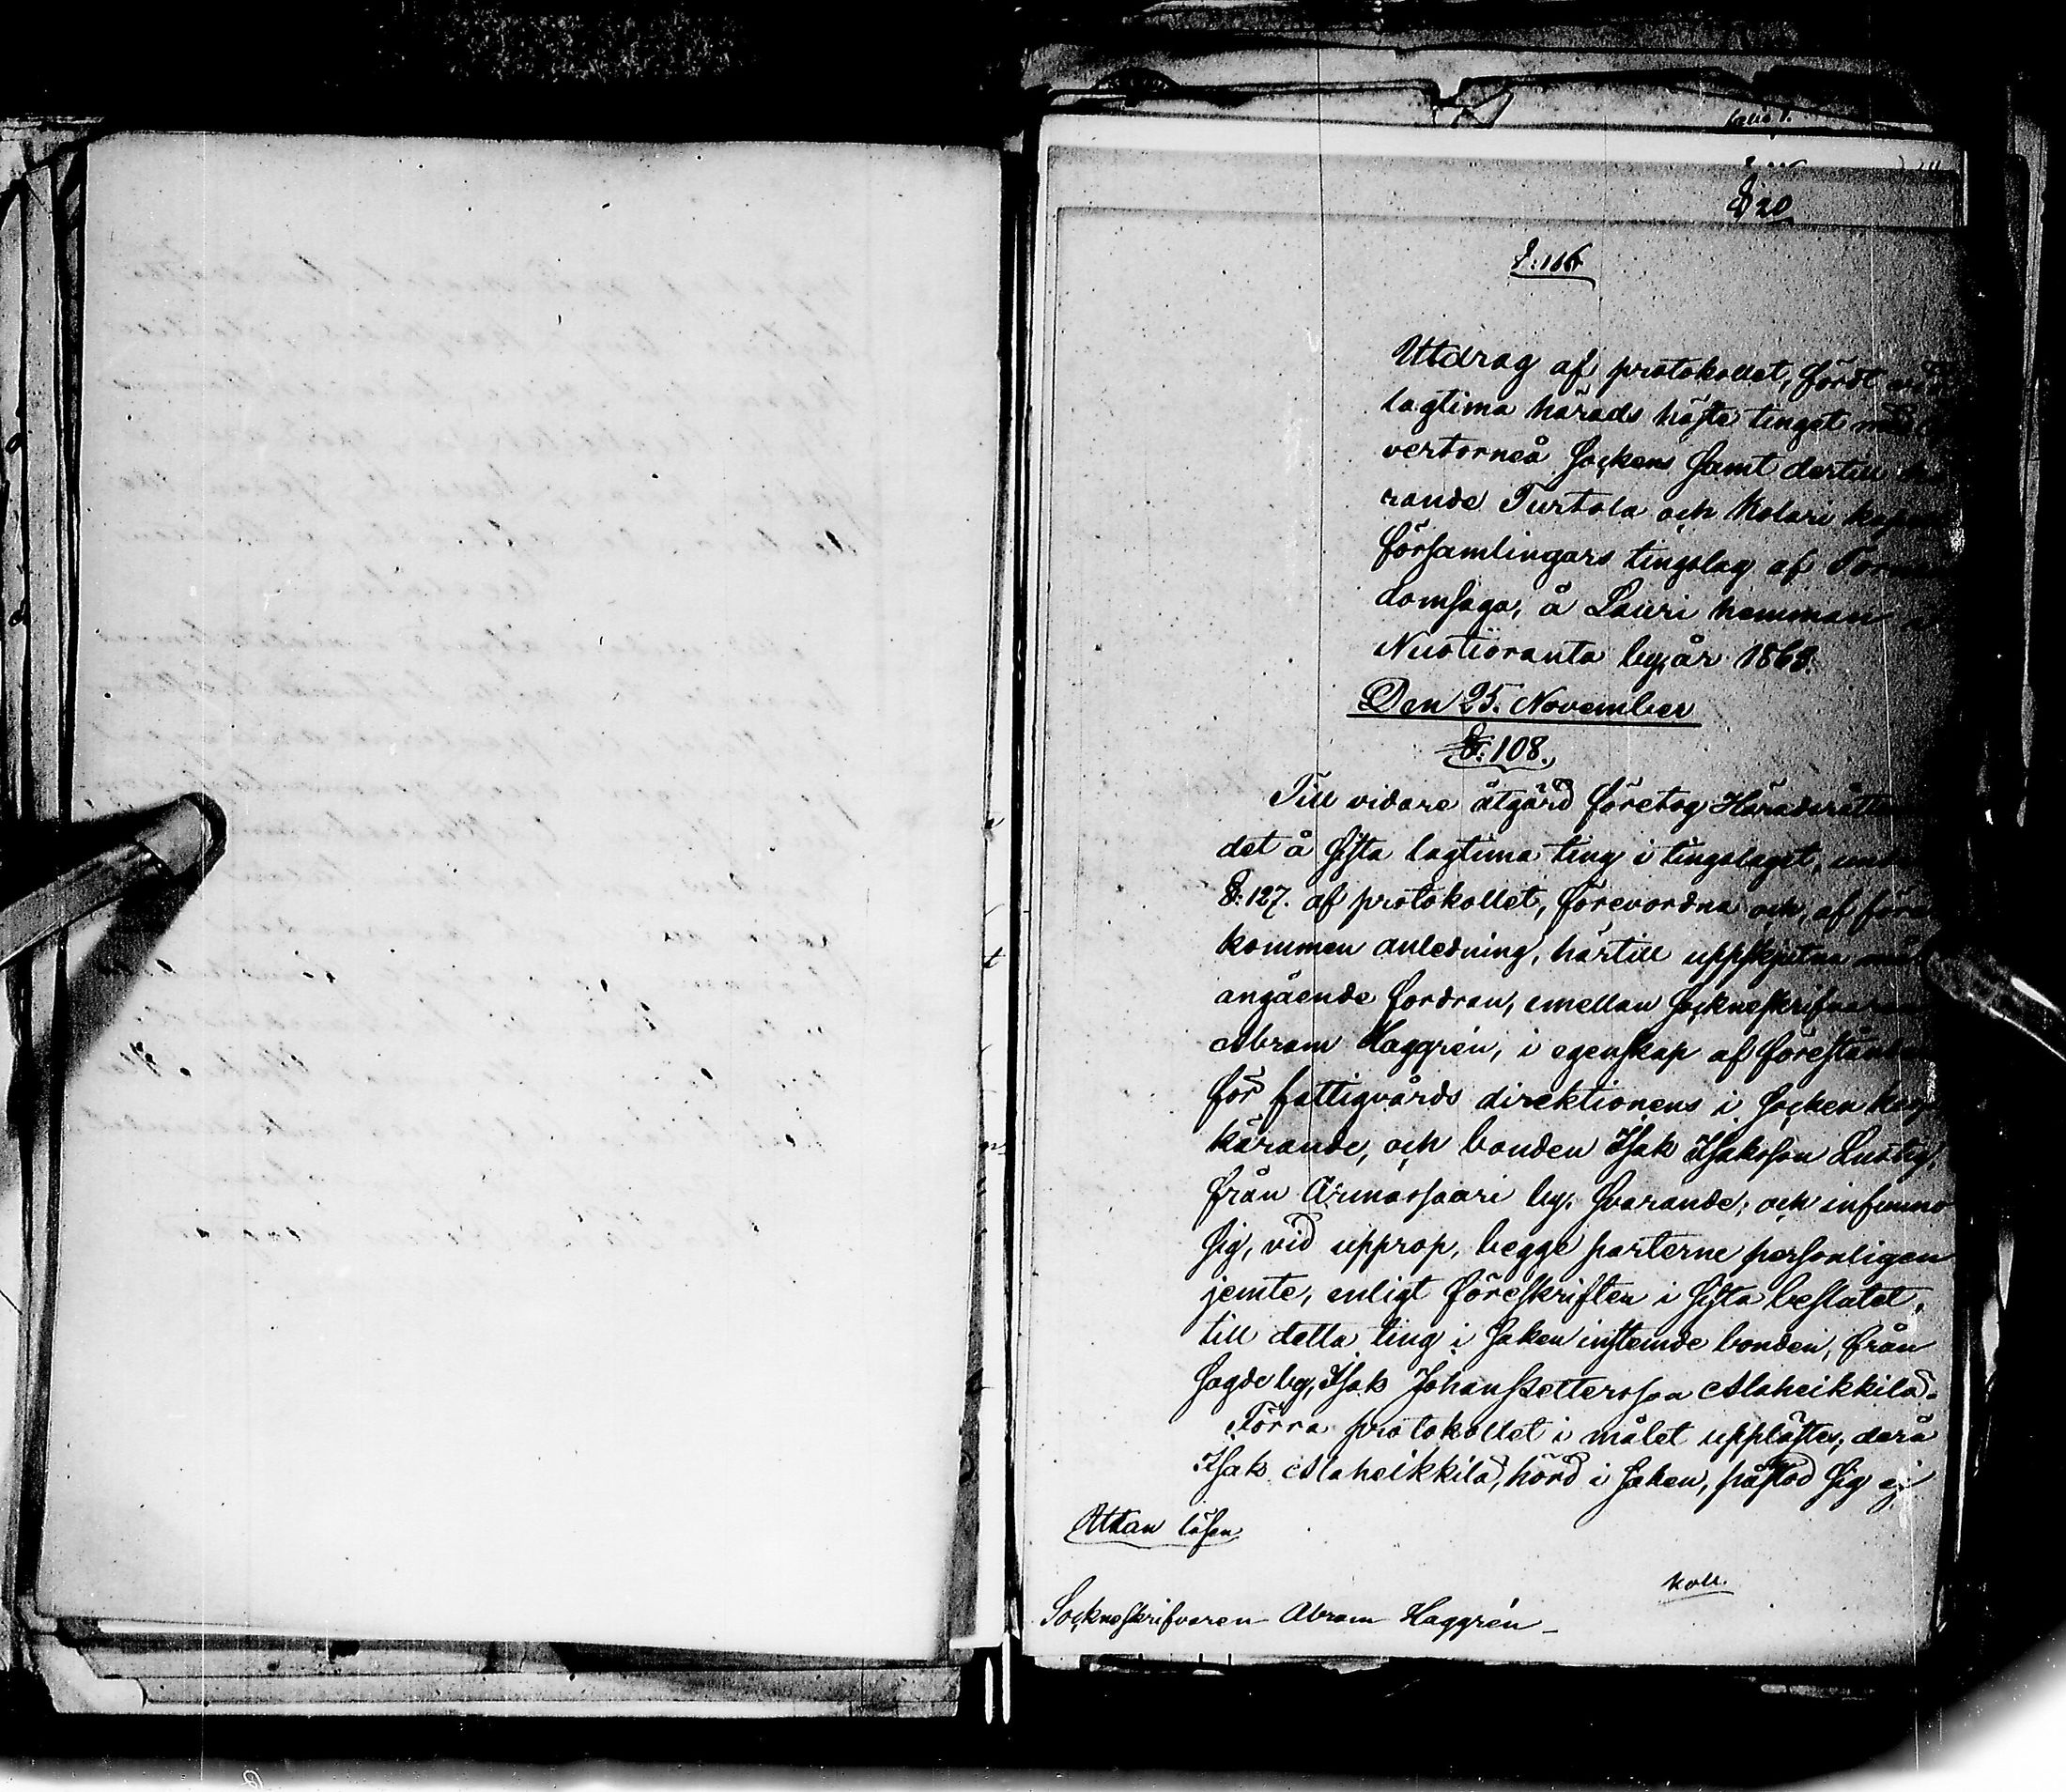 § 20
§: 166
Utdrag af protokollet, fördt vid
lagtima härads höste tinget med
vertorneå Sockens samt dertill
rande Turtola och Kolari kapell
församlingars tingslag af Torneå
domsaga, å Lauri hemman
Nuotioranta by, år 1868.
Den 25. November
§: 108.
Till vidare åtgärd företog Häradsrätten
det å sista lagtima ting i tingslaget, under
§: 127. af protokollet, förevordna och, af före
kommen anledning, härtill uppskjutna mål
angående fordran, emellan Sockneskrifvaren
Abram Haggrén, i egenskap af föreståndare
för fattigvårds direktionens i Socken
kärande, och bonden Isak Isaksson Lustig,
från Armassaari by, svarande; och infunno
sig, vid upprop, begge parterne personligen
jemte, enligt föreskriften i sista beslutet,
till detta ting i saken instemde bonden, från
sagde by, Isak Johan Pettersson Alaheikkilä.
Förra protokollet i målet upplästes, derå
Isak Alaheikkilä, hörd i saken, påstod sig ej
Utan lösen
koll.
Sockneskrifvaren Abram Haggrén